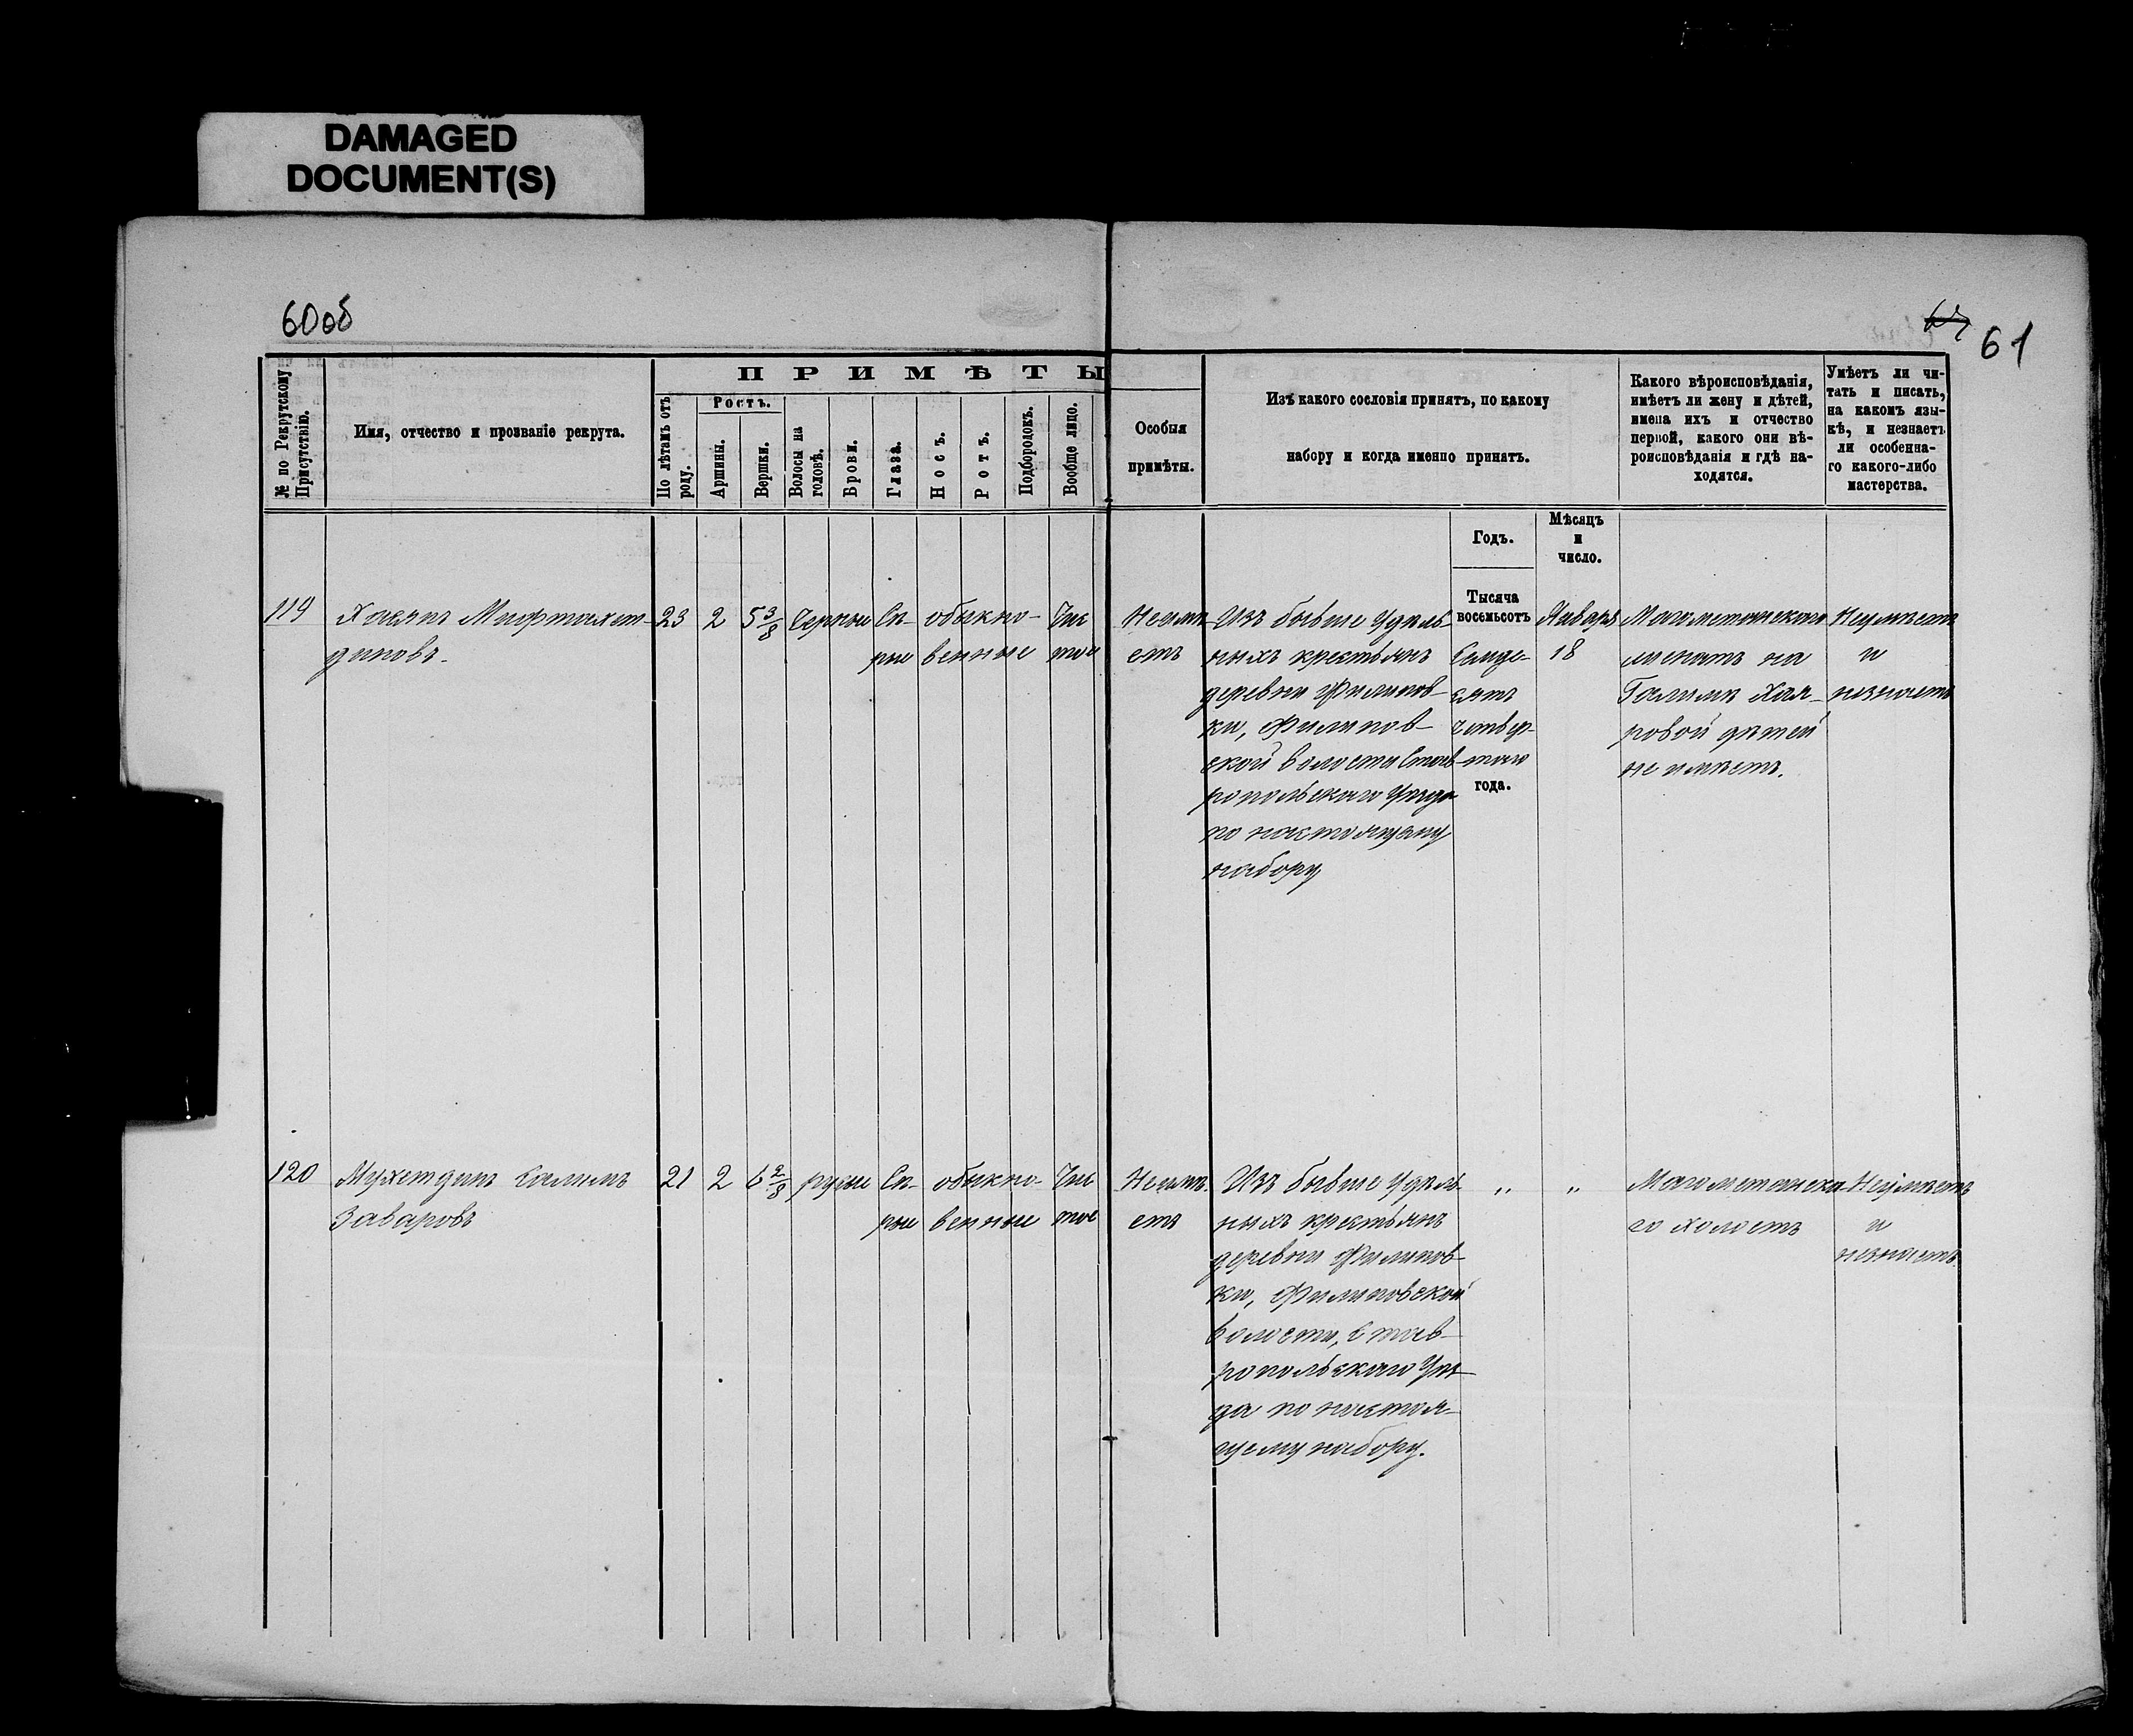 DAMAGED
DOCUMENT(S)
60 об
61
№ по Рекрутскому Присутствію.
Имя, отчество и прозваніе рекрута.
ПРИМѢТЫ
По лѣтамъ отъ роду.
Ростъ.
Аршины.
Вершки.
Волосы на головѣ.
Брови.
Глаза.
Носъ.
Ротъ.
Подбородокъ.
Вообще лицо.
Особыя
примѣты.
Изъ какого сословія принятъ, по какому
набору и когда именно принятъ.
Какого вѣроисповѣданія,
имѣетъ ли жену и дѣтей,
имена ихъ и отчество
первой, какого они вѣ-
роисповѣданія и гдѣ на-
ходятся.
Умѣетъ ли чи-
тать и писать,
на какомъ язы-
кѣ, и незнаетъ
ли особенна-
го какого-либо
мастерства.
Годъ.
Мѣсяцъ
и
число.
Тысяча
восемьсотъ
119 Хасянъ Мифтахет-
диновъ.
23 2 5 3/8 Черные Сѣ- обыкно- Чис
рые венные тое
Неимѣ-
етъ
Изъ бывше Удѣль-
ныхъ крестьянъ
деревни Филипов-
ки, Филипов-
ской волости Став-
ропольскаго Уѣзда
по настоящему
набору
Семде-
сятъ
четвер-
таго
года.
Января
18
Магометанскаго
женатъ на
Галимѣ Хая-
ровой дѣтей
не имѣетъ.
Неумѣетъ
и
незнаетъ
120 Мухетдинъ Салимъ
Заваровъ
21 2 6 2/8 русые Сѣ- обыкно- Чис
рые венные тое
Неимѣ-
етъ
Изъ бывше Удѣль-
ныхъ крестьянъ
деревни Филипов-
ки, Филиповской
волости, Став-
ропольскаго Уѣз-
да по настоя-
щему набору.
" "
Магометанска-
го холостъ
Неумѣетъ
и
незнаетъ.